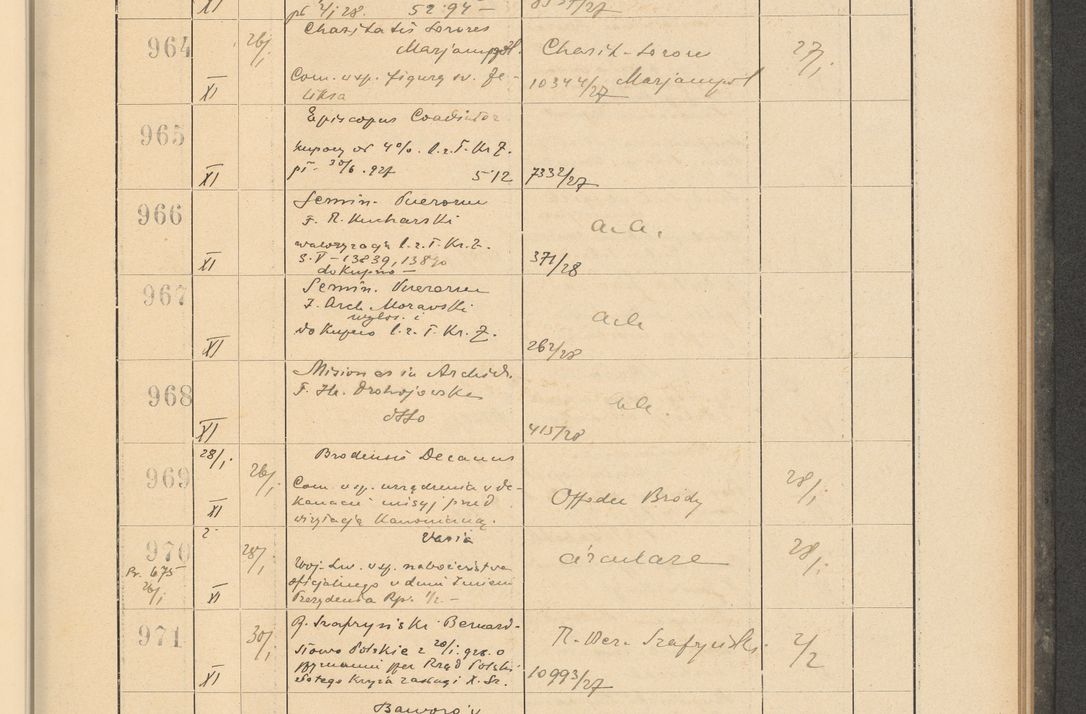 XI pł. 2/1 28. 52.94 —
964 26/1 Charitatis Sorores
Marjampol. Charit. Soror 27/1
Com. wsp. figury św. Fe-
XI liksa 10344/27 Marjampol
965 Episcopus Coadiutor
kupony od 4% l. z. T. Kr. Z.
XI pł. 30/6 .927 512 7332/27
966 Semin. Puerorum
F. R. Kucharski a.a.
l. z. T. Kr. Z.
XI S. V – 13839, 13830 371/28
dokupno —
967 Semin. Puerorum
F. Arch. Morawski
wylos. i a.a.
dokupno l. z. T. Kr. Z.
XI 262/28
968 in Archid.
F. Hr. Drohojowska
XI 415/28
28/1. Brodensis Decanus
969 26/1. Com. wsp. urządzenia w de-
kanacie misyj przed Offdec Brody 28/1
XI wizytacją kanoniczną.
2 Varia
970 28/1 circulare 28/1
Pr. 675 Woj. Lw. wsp. nabożeństwa
26/1 oficjalnego w dniu Imienin
XI Prezydenta Rp. 1/2. –
971 30/1 R. Szafryński Bernard-
Słowo Polskie z 20/1. 928. o 2/2
przyznaniu per Rząd Polski
XI złotego Krzyża zasługi X. Sz. 10993/27